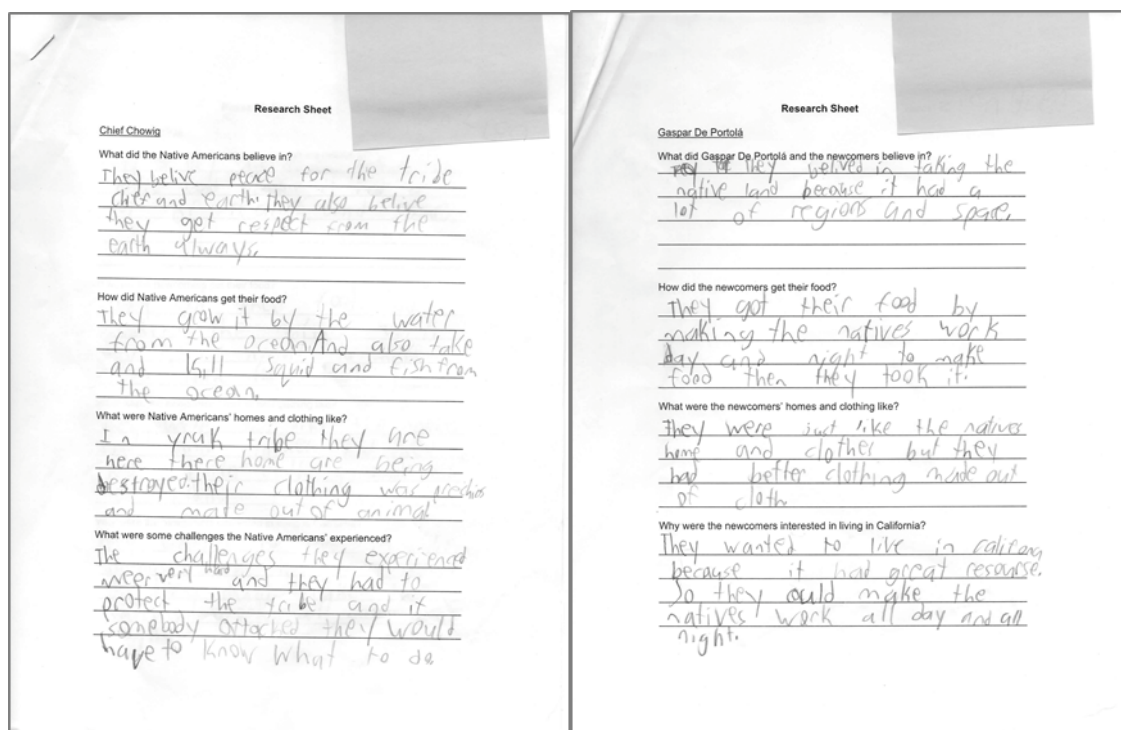 Research Sheet
Chief Chowig
What did the Native Americans believe in?
They belive peace for the tride
chief and earth. They also belive
they get respect from the
earth always.
How did Native Americans get their food?
They grow it by the water
from the ocean And also take
and kill squid and fish from
the ocean.
What were Native Americans' homes and clothing like?
In yruk tribe they are
here there home are being
destroyed. their clothing was
and made out of animal
What were some challenges the Native Americans' experienced?
The challenges they experienced
weer very hard and they had to
protect the tribe and if
somebody attacked they would
have to know what to do
Research Sheet
Gaspar De Portolá
What did Gaspar De Portolá and the newcomers believe in?
They belived in taking the
native land because it had a
lot of regions and space.
How did the newcomers get their food?
They got their food by
making the natives work
day and night to make
food then they took it.
What were the newcomers' homes and clothing like?
They were just like the natives
home and clother but they
had better clothing made out
of cloth
Why were the newcomers interested in living in California?
They wanted to live in
because it had great resourse.
So they could make the
natives work all day and all
night.